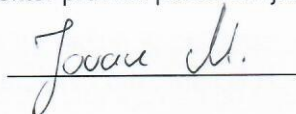 Jovan M.